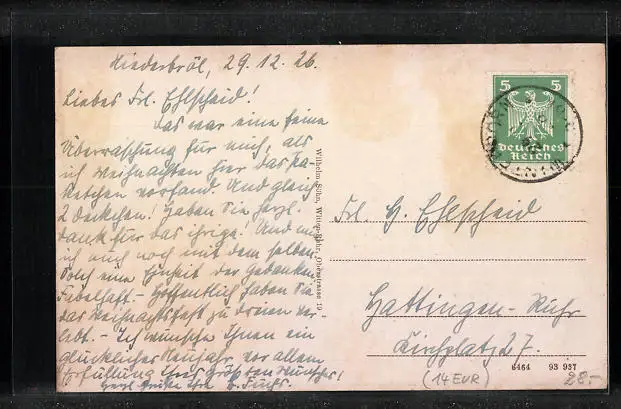 Niederbröl, 29.12.26.
Liebes Frl. Ehlscheid!
Das war eine feine
Überraschung für mich, als
ich Weihnachten hier das Pa-
ketchen vorfand. Und gleich
2 Deckchen! Haben Sie herzl.
Dank für das ihrige! Und
ich auch noch mit dem selben.
Solch eine Einheit der Gedanken
Fabelhaft. - Hoffentlich haben Sie
das Weihnachtsfest zu dreien ver-
lebt. - Ich wünsche Ihnen ein
glückliches Neujahr, vor allem
Erfüllung Ihres größten Wunsches!
Herzl. Grüße Ihre Fuchs.
Wilhelm Söhn, Witten-Ruhr, Oberstrasse 19
5 5
Deutsches
Reich
Frl. H. Ehlscheid
Hattingen-Ruhr
Kirchplatz 27.
6464 93 937
(14 EUR) 28.-